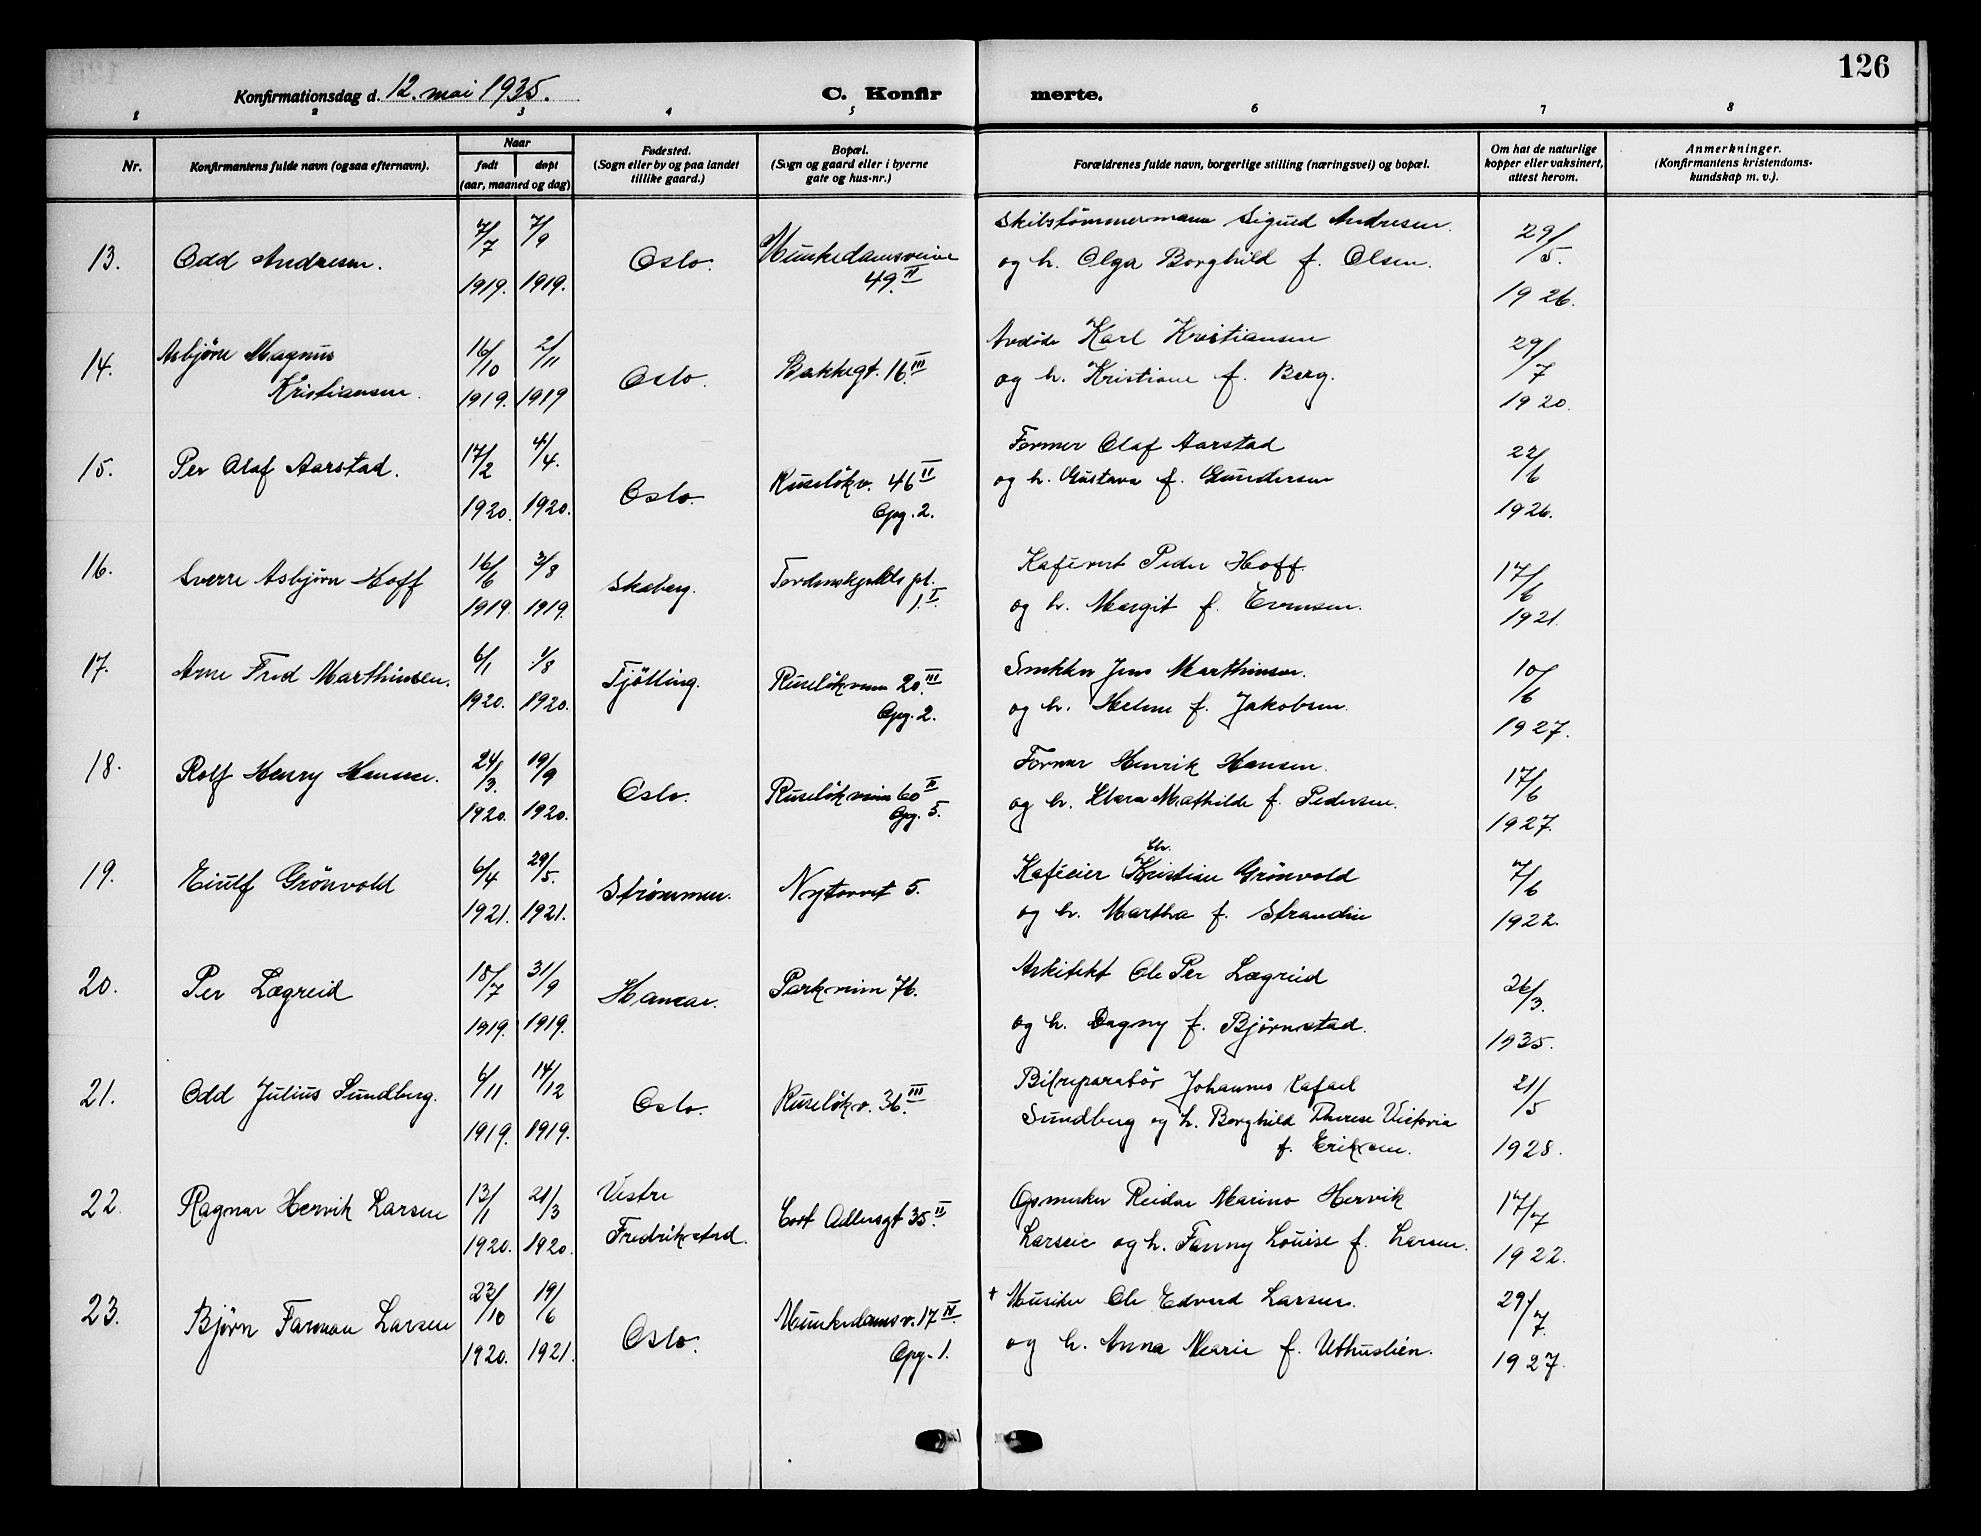 126
Konfirmationsdag d. 12. mai 1935.
C. Konfir merte.
1 2 3 4 5 6 7 8
Nr.
Konfirmantens fulde navn (ogsaa efternavn).
Naar
født døpt
(aar, maaned og dag)
Fødested.
(Sogn eller by og paa landet
tillike gaard.)
Bopæl.
(Sogn og gaard eller i byerne
gate og hus-nr.)
Forældrenes fulde navn, borgerlige stilling (næringsvei) og bopæl.
Om hat de naturlige
kopper eller vaksinert,
attest herom.
Anmerkninger.
(Konfirmantens kristendoms-
kundskap m. v.).
13. Odd Andresen. 7/7 1919. 7/9 1919. Oslo. Munkedamsveien
49.II
Skibstømmermann Sigurd Andresen.
og h. Olga Borghild f. Olsen.
29/5. 1926.
14. Asbjørn Magnus
Kristiansen.
16/10 1919. 2/11 1919 Oslo. Bakkegt. 16.III
Avdøde Karl Kristiansen
og h. Kristiane f. Berg.
29/7 1920.
15. Per Olaf Aarstad. 17/2 1920. 4/4. 1920. Oslo. Ruseløkv. 46 II
Opg. 2.
Former Olaf Aarstad
og h. Gustava f. Gundersen
22/6 1926.
16. Sverre Asbjørn Hoff 16/6 1919. 3/8 1919. Skaberg. Tordenskjolds pl.
1.II
Kafévert Peder Hoff.
og h. Margit f. Evensen.
17/6 1921.
17. Arne Fred Marthinsen. 6/1 1920. 1/8 1920. Tjølling. Ruseløkveien 20.III
Opg. 2.
Snekker Jens Marthinsen.
og h. Helene f. Jakobsen.
10/6 1927.
18. Rolf Henry Hansen. 24/3. 1920. 19/9 1920. Oslo. Ruseløkveien 60 II
Opg. 5.
Former Henrik Hansen.
og h. Klara Mathilde f. Pedersen.
17/6 1927.
19. Eiulf Grönvold 6/4 1921. 29/5. 1921. Strømmen. Nytorvet 5.
Chr.
Kaféeier Kristian Grönvold
og h. Martha f. Strandin
7/6 1922.
20. Per Lægreid 18/7 1919. 31/9 1919. Hamar. Parkveien 76.
Arkitekt Ole Per Lægreid
og h. Dagny f. Bjørnstad.
26/3. 1935.
21. Odd Julius Sundberg. 6/11 1919. 14/12 1919. Oslo. Ruseløkv. 36.III
Bilreparatör Johannes Rafael
Sundberg og h. Borghild Therese Victoria
f. Eriksen.
21/5 1928.
22. Ragnar Hervik Larsen 13/1 1920. 21/3 1920. Vestre
Fredrikstad.
Cort Adlersgt 35.II
Reidar Marino Hervik
Larsen og h. Fanny Louise f. Larsen.
17/7 1922.
23. Bjørn Farman Larsen 23/10 1920. 19/6 1921. Oslo. Munkedamsv. 17 IV.
Opg. 1.
† Musiker Ole Edvard Larsen.
og h. Anna Marie f. Uthuslien.
29/7. 1927.